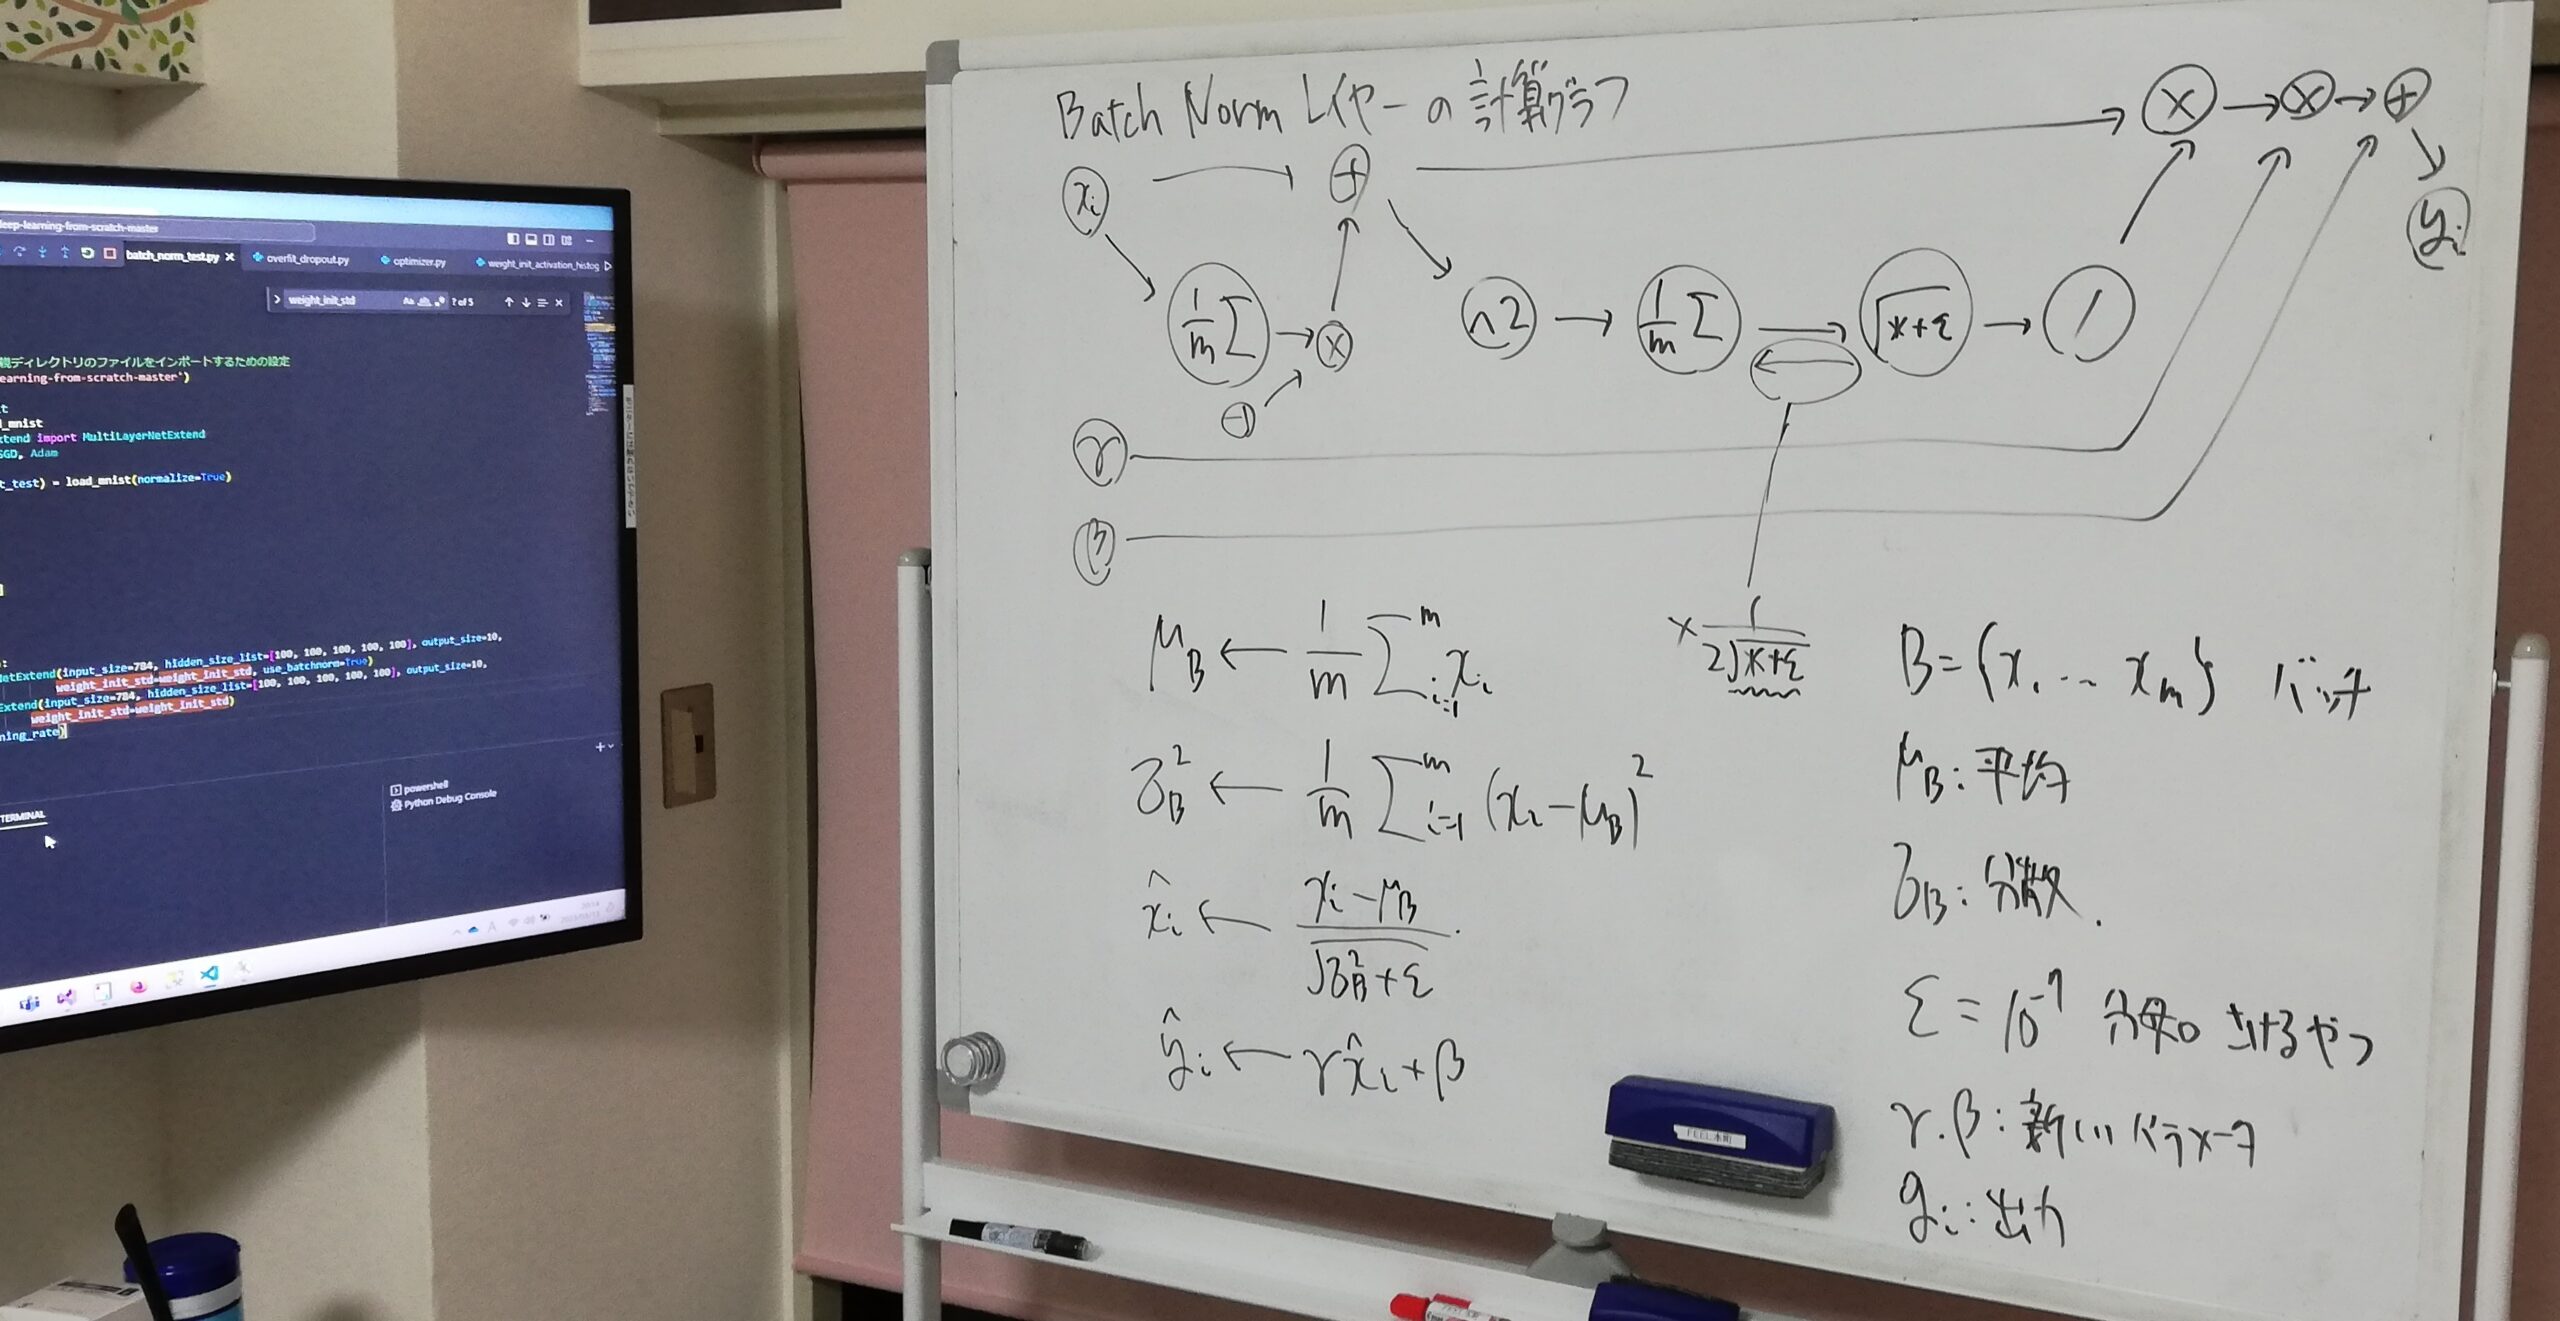 deep-learning-from-scratch-master
batch_norm_test.py × overfit_dropout.py optimizer.py weight_init_activation_histog
weight_init_std Aa ab .* ? of 5
親ディレクトリのファイルをインポートするための設定
earning-from-scratch-master')
t
d_mnist
xtend import MultiLayerNetExtend
SGD, Adam
t_test) = load_mnist(normalize=True)
:
NetExtend(input_size=784, hidden_size_list=[100, 100, 100, 100, 100], output_size=10,
weight_init_std=weight_init_std, use_batchnorm=True)
Extend(input_size=784, hidden_size_list=[100, 100, 100, 100, 100], output_size=10,
weight_init_std=weight_init_std)
ning_rate)
TERMINAL
powershell
Python Debug Console
Batch Norm レイヤーの計算グラフ
xᵢ + × × + yᵢ
1/m Σ × ^2 1/m Σ √(x+ε) /
-1
γ
β
× 1/(2√(x+ε))
μ_B ← 1/m Σ^m_{i=1} xᵢ
σ_B^2 ← 1/m Σ^m_{i=1} (xᵢ-μ_B)^2
x̂ᵢ ← (xᵢ-μ_B)/√(σ_B^2+ε)
ŷᵢ ← γx̂ᵢ+β
B = {x₁ ... x_m} バッチ
μ_B : 平均
σ_B : 分散.
ε = 10^-7 分母0 さけるやつ
γ.β : 新しいパラメータ
yᵢ : 出力